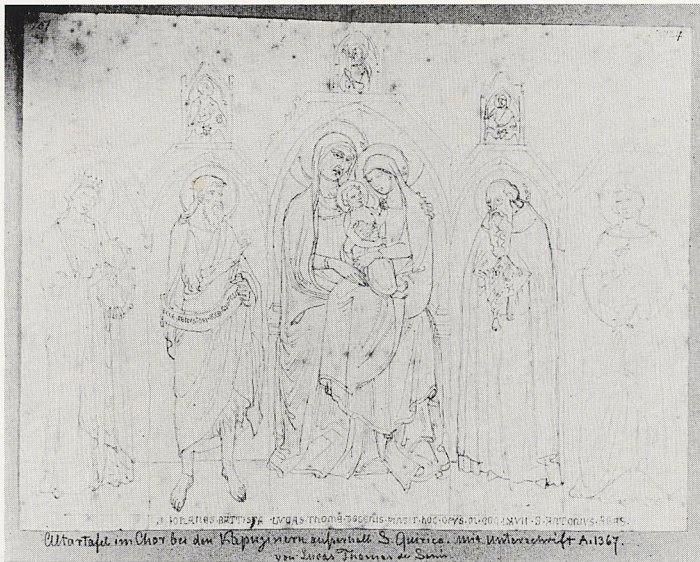 S. IOHANES. BATTISTA LUCAS. THOMÈ. DESENIS. PINSIT. HOC. OPVS. M. CCC. LXVII. S. ANTONIUS. ABAS.
Altartafel im Chor bei den Kapuzinern ausserhalb S. Quirico. mit Unterschrift A. 1367.
von Lucas Thomas de Senis